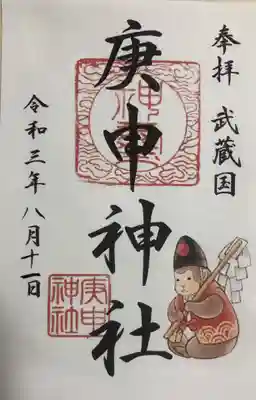 奉拝 武蔵国
庚申神社
令和三年八月十一日
庚申
神社